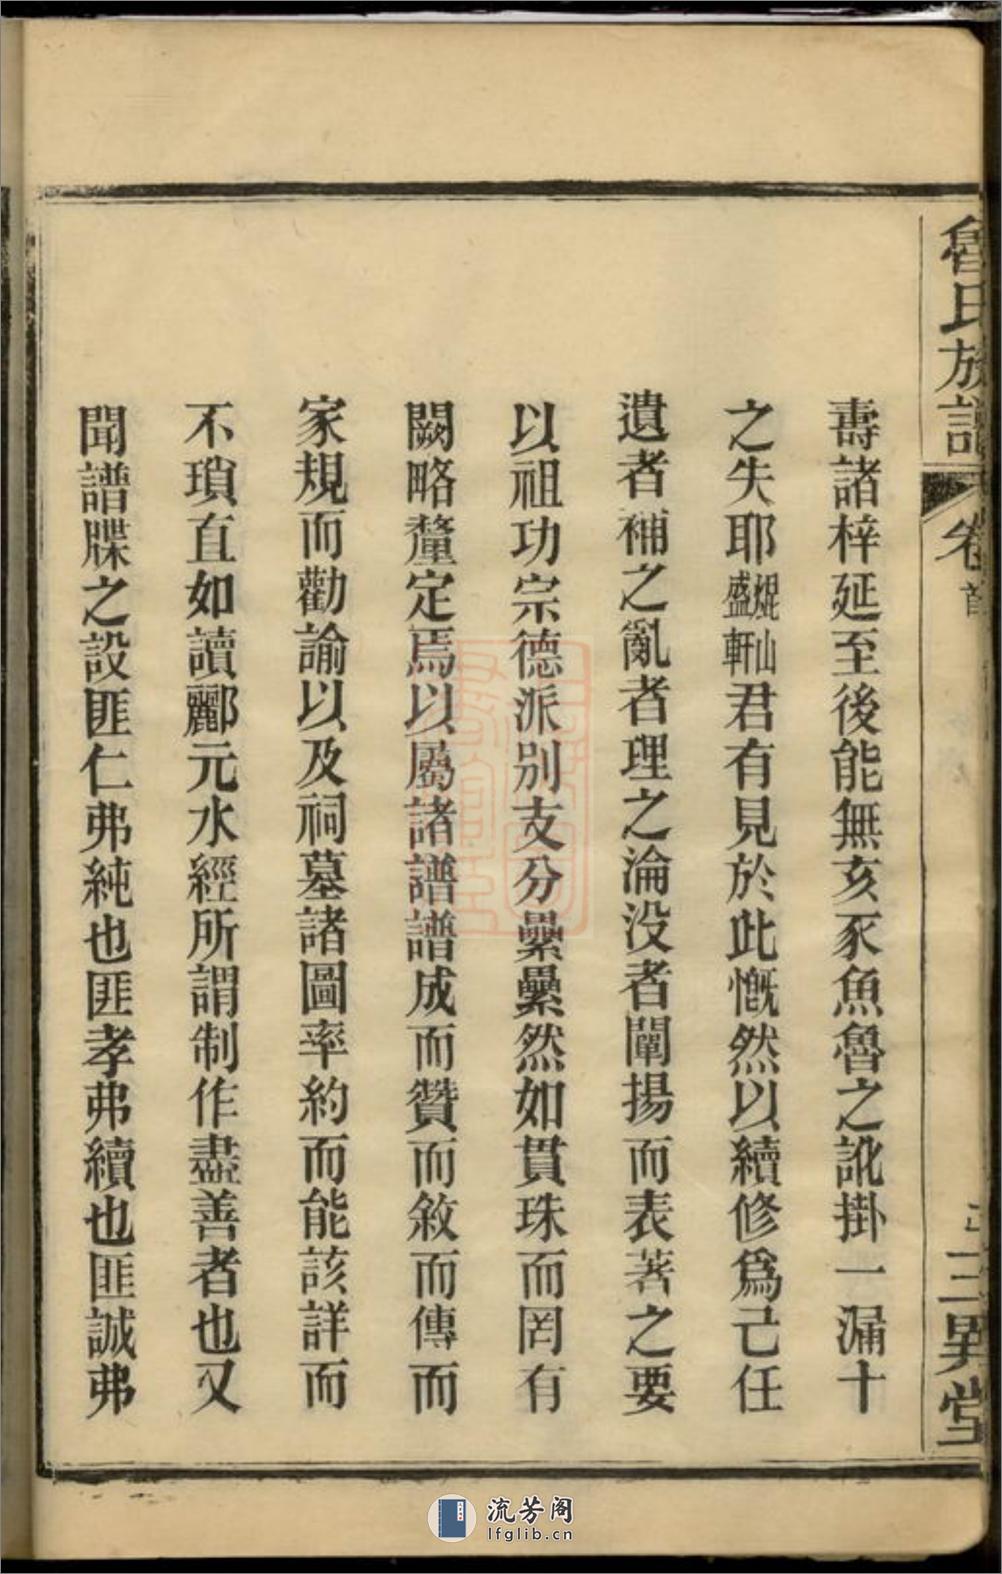 魯氏族譜 卷首 三異堂
壽諸梓延至後能無亥豕魚魯之訛掛一漏十
之失耶焜山盛軒君有見於此慨然以續修爲己任
遺者補之亂者理之淪没者闡揚而表著之要
以祖功宗德派別支分纍纍然如貫珠而罔有
闕略釐定焉以屬諸譜譜成而贊而敘而傳而
家規而勸諭以及祠墓諸圖率約而能該詳而
不瑣直如讀酈元水經所謂制作盡善者也又
聞譜牒之設匪仁弗純也匪孝弗續也匪誠弗
流芳阁
lfglib.cn